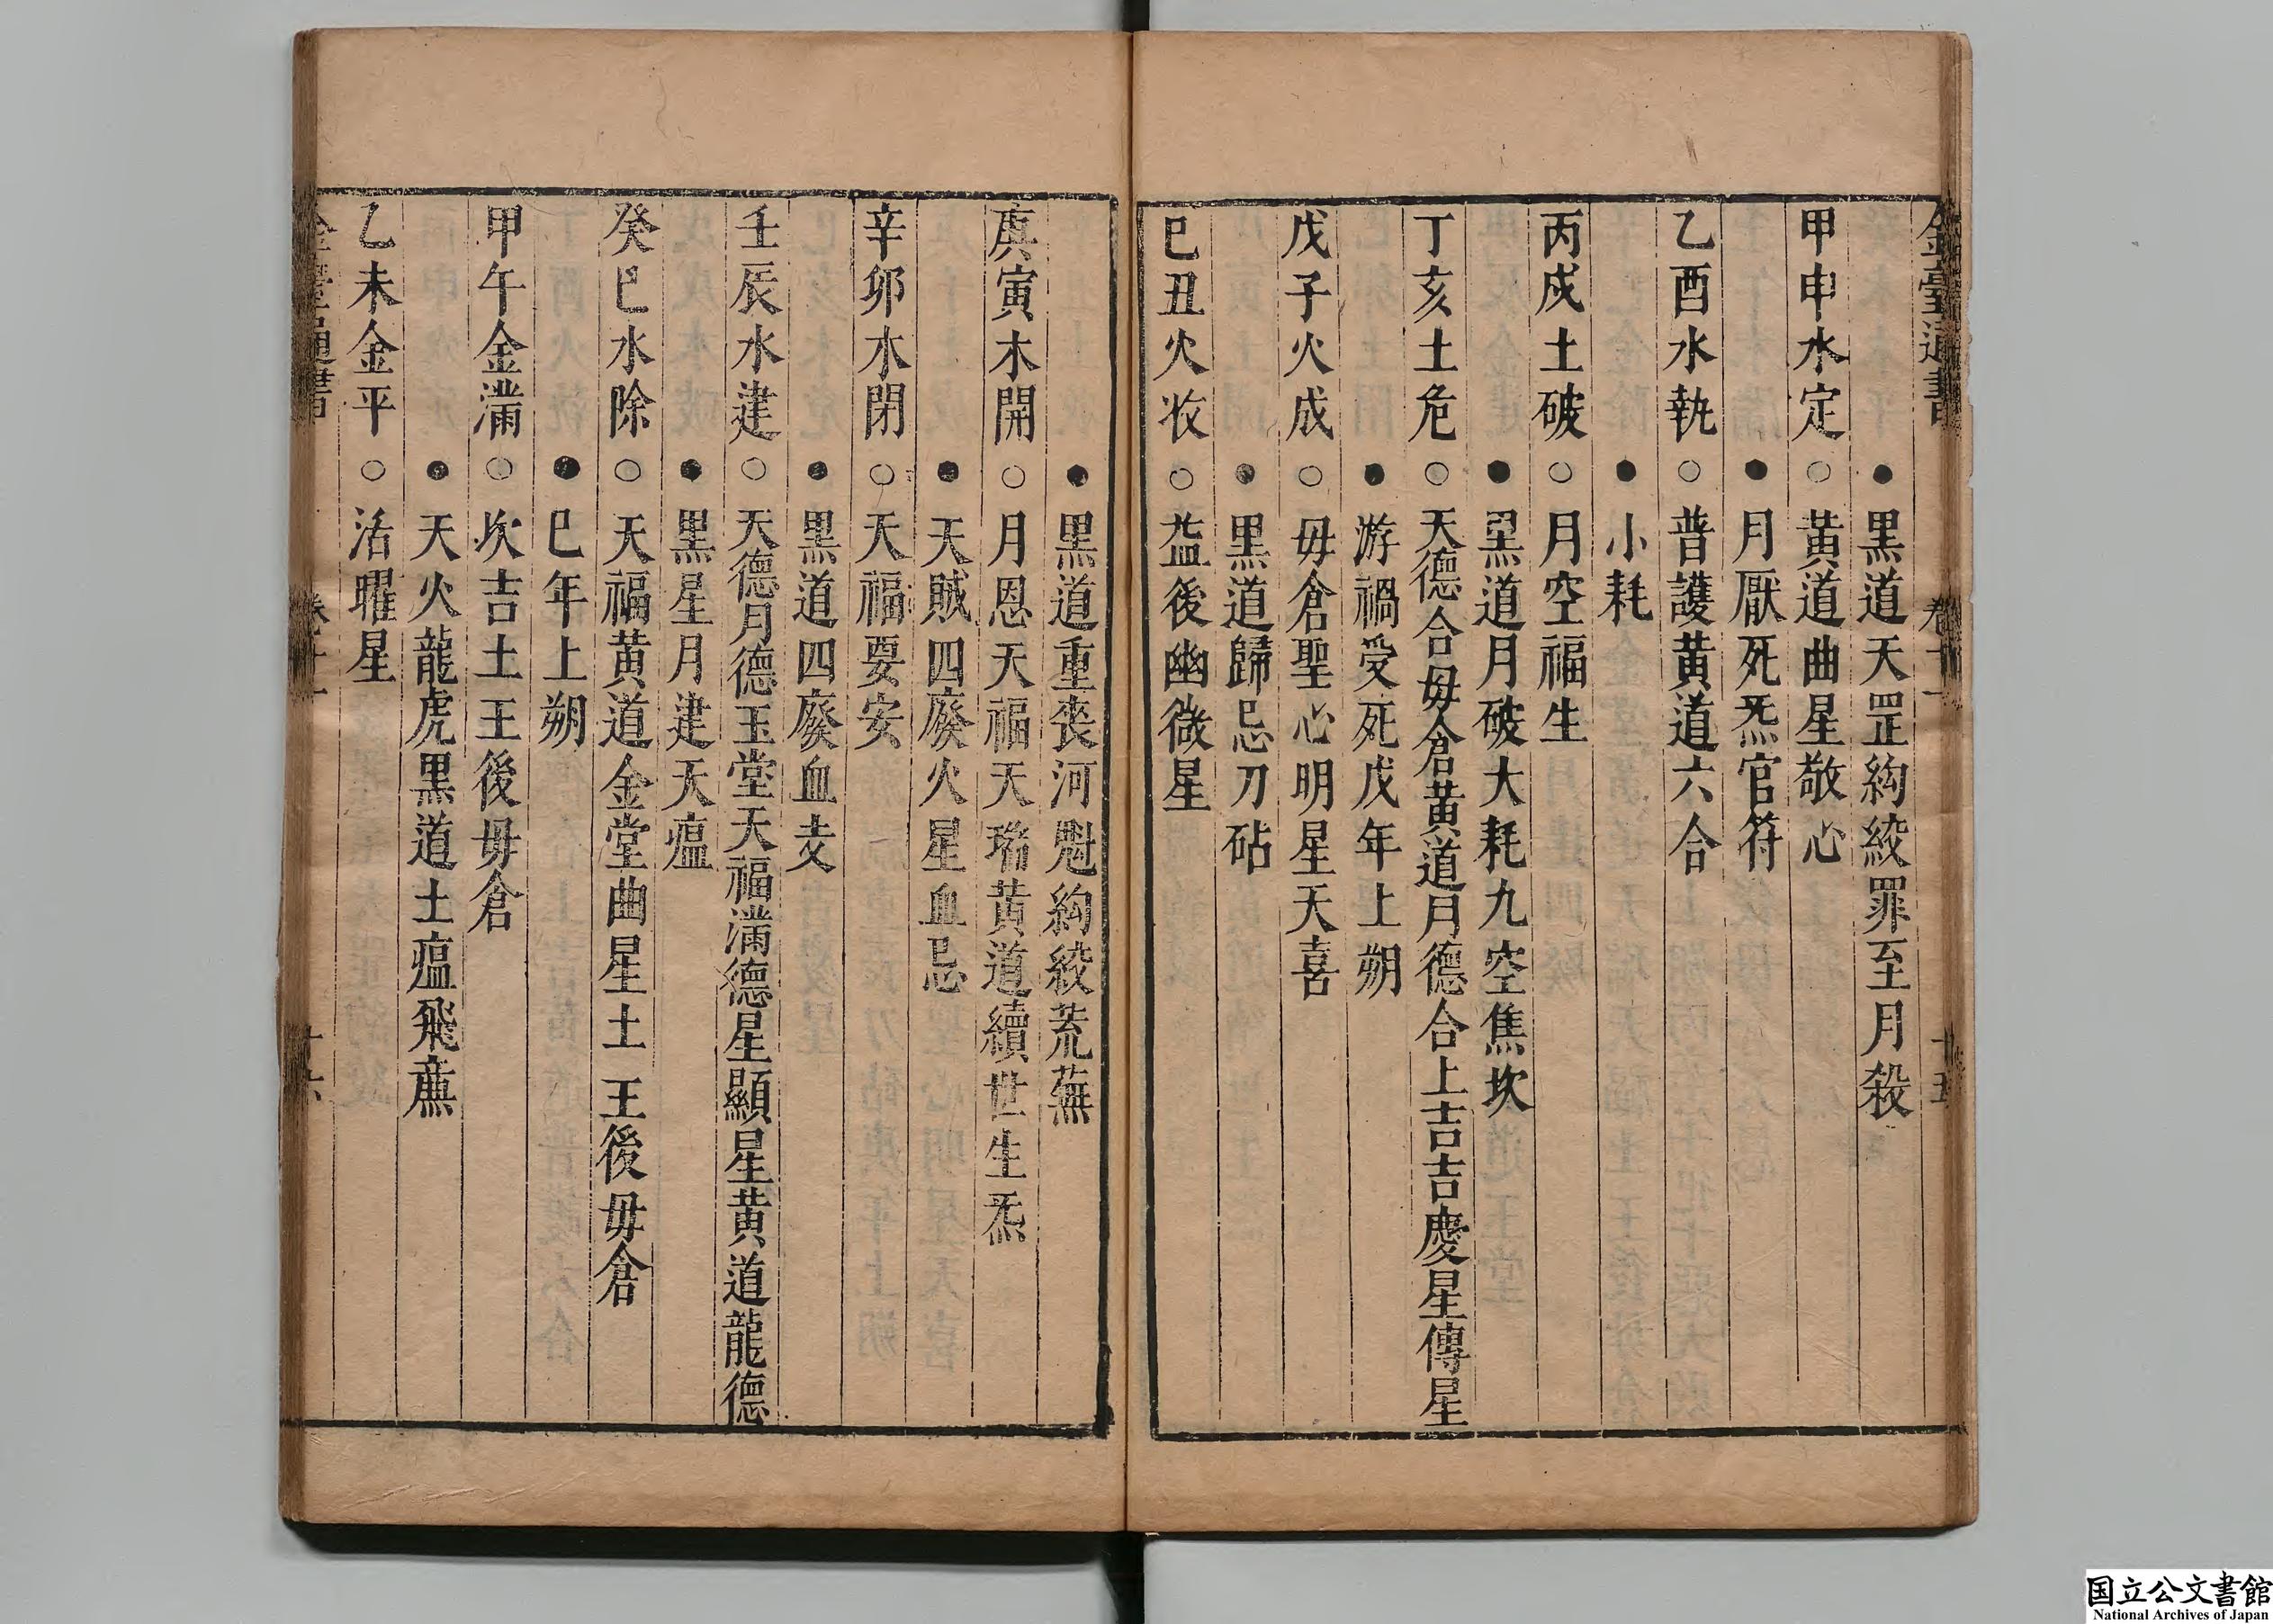 金臺通書 卷十一 十五
●黒道天罡絇絞罪至月殺
甲申水定○黃道曲星敬心
●月厭死炁官符
乙酉水執○普護黃道六合
●小耗
丙戌土破○月空福生
●黒道月破大耗九空焦坎
丁亥土危○天德合毋倉黃道月德合上吉吉慶星傳星
●游禍受死戊年上朔
戊子火成○毋倉聖心明星天喜
●黒道歸忌刀砧
巳丑火收○益後幽微星
●黒道重丧河魁絇絞荒蕪
庚寅木開○月恩天福天瑞黃道續世生炁
●天賊四廢火星血忌
辛卯木閉○天福要安
●黒道四廢血支
壬辰水建○天德月德玉堂天福滿德星顯星黃道龍德
●黒星月建天瘟
癸巳水除○天福黃道金堂曲星土王後毋倉
●巳年上朔
甲午金滿○坎吉土王後毋倉
●天火龍虎黒道土瘟飛廉
乙未金平○活曜星
金臺通書
国立公文書館
National Archives of Japan